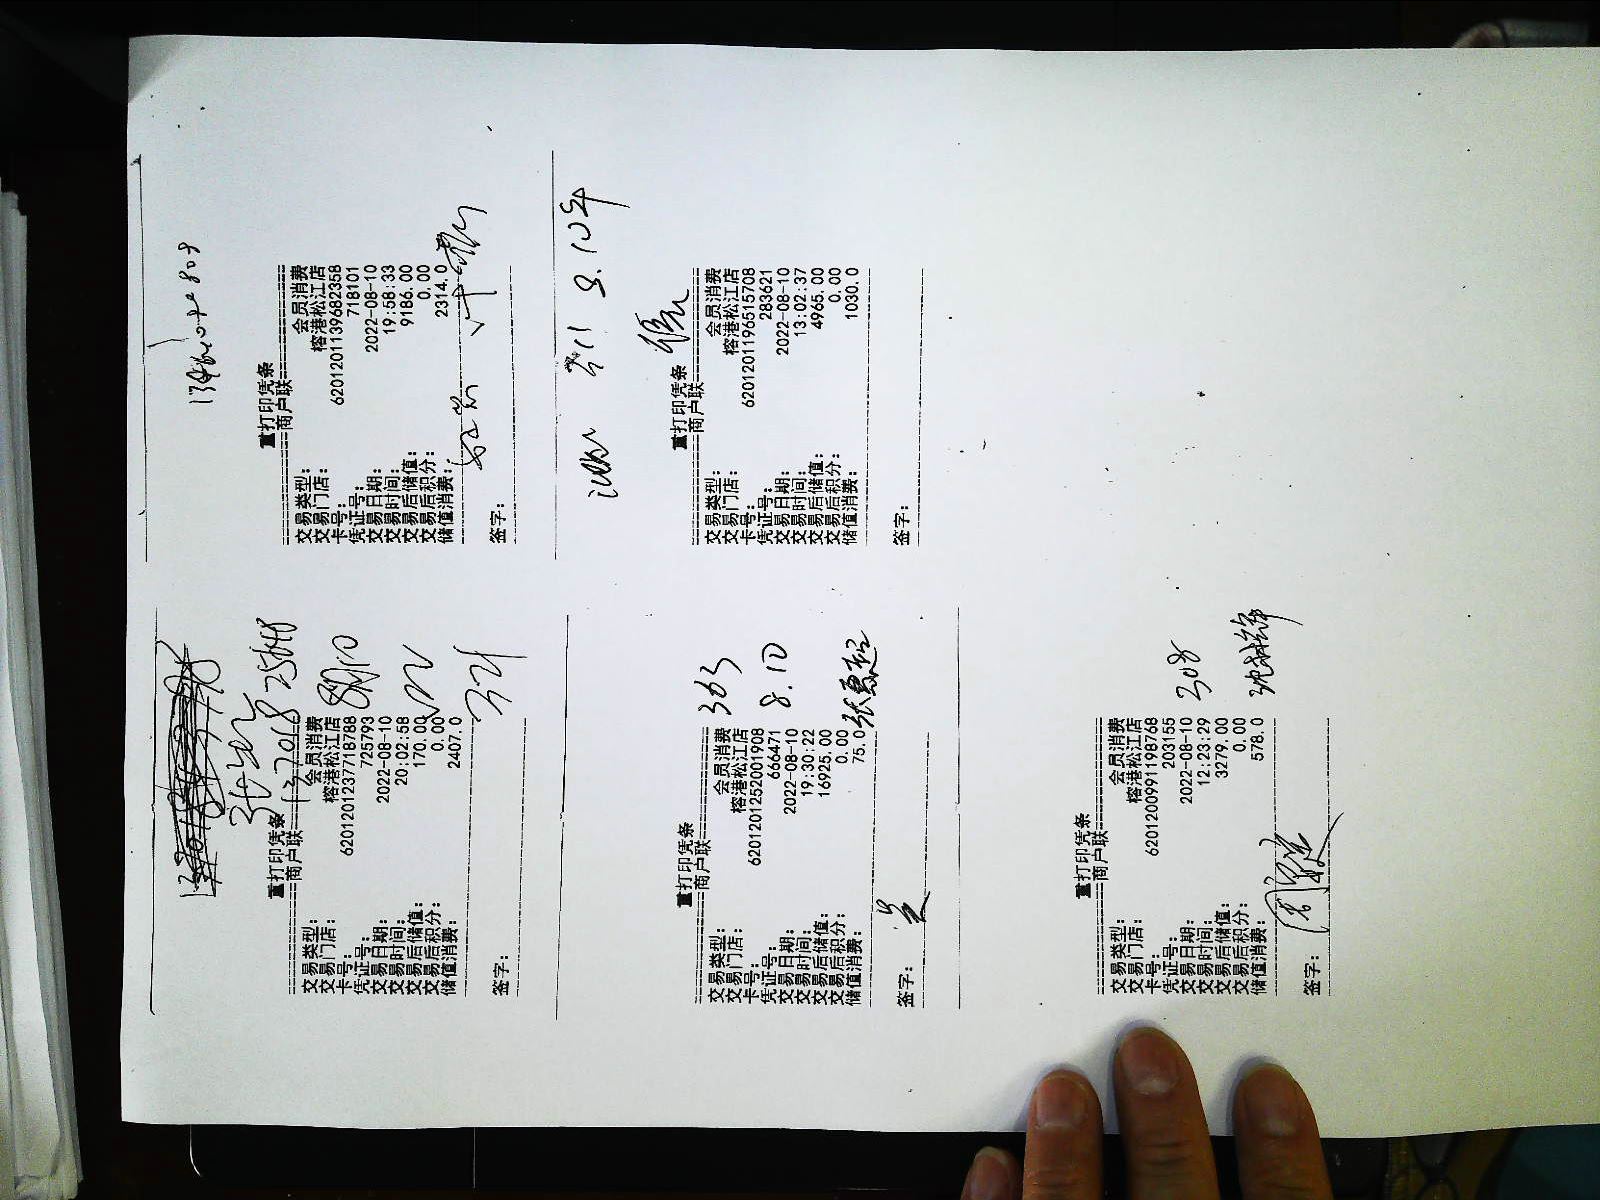 重打印凭条
商户联
交易类型: 会员消费
交易门店: 榕港松江店
卡号: 6201201237718788
凭证号: 725793
交易日期: 2022-08-10
交易时间: 20:02:58
交易后储值: 170.00
交易后积分: 0.00
储值消费: 2407.0
签字:
重打印凭条
商户联
交易类型: 会员消费
交易门店: 榕港松江店
卡号: 6201201139682358
凭证号: 718101
交易日期: 2022-08-10
交易时间: 19:58:33
交易后储值: 9186.00
交易后积分: 0.00
储值消费: 2314.0
签字:
363
8.10
重打印凭条
商户联
交易类型: 会员消费
交易门店: 榕港松江店
卡号: 6201201252001908
凭证号: 666471
交易日期: 2022-08-10
交易时间: 19:30:22
交易后储值: 16925.00
交易后积分: 0.00
储值消费: 75.0
签字:
重打印凭条
商户联
交易类型: 会员消费
交易门店: 榕港松江店
卡号: 6201201196515708
凭证号: 283621
交易日期: 2022-08-10
交易时间: 13:02:37
交易后储值: 4965.00
交易后积分: 0.00
储值消费: 1030.0
签字:
重打印凭条
商户联
交易类型: 会员消费
交易门店: 榕港松江店
卡号: 6201200991198768
凭证号: 203155
交易日期: 2022-08-10
308
交易时间: 12:23:29
交易后储值: 32279.00
交易后积分: 0.00
储值消费: 578.0
签字: